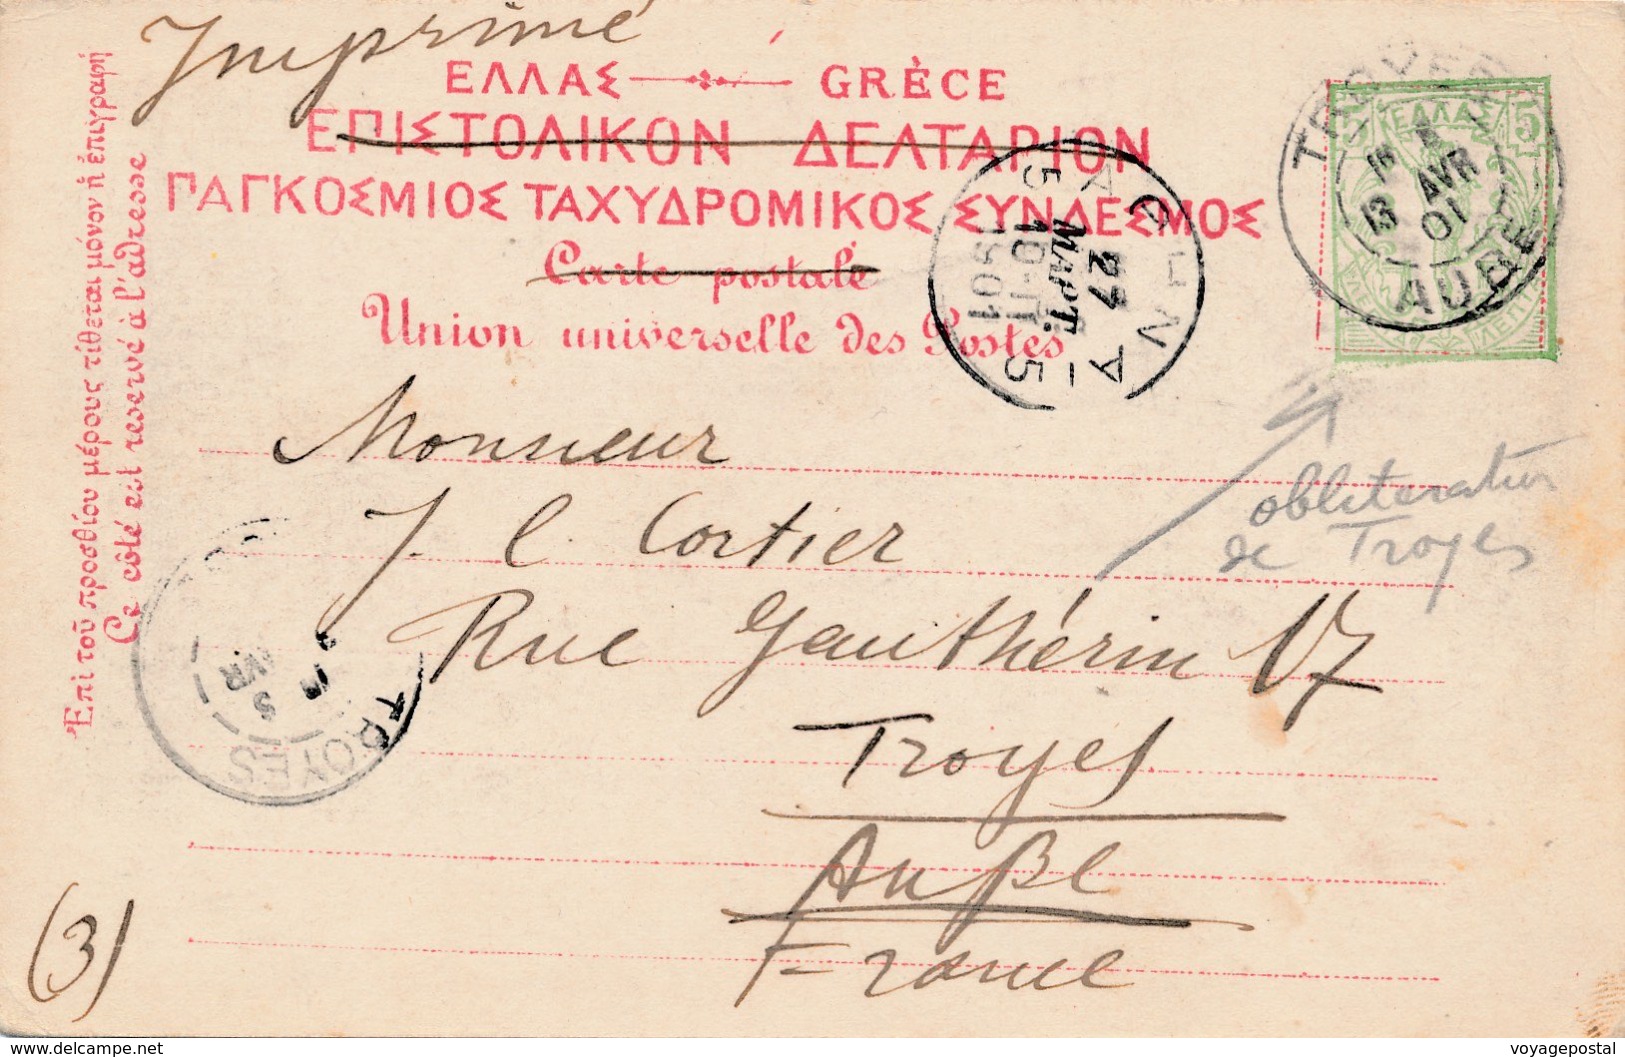 Imprimé
ΕΛΛΑΣ GRÈCE
ΕΠΙΣΤΟΛΙΚΟΝ ΔΕΛΤΑΡΙΟΝ
ΠΑΓΚΟΣΜΙΟΣ ΤΑΧΥΔΡΟΜΙΚΟΣ ΣΥΝΔΕΣΜΟΣ
Carte postale
Union universelle des Postes
Ἐπὶ τοῦ προσθίου μέρους τίθεται μόνον ἡ ἐπιγραφή
Ce côté est reservé à l'adresse
5 ΕΛΛΑΣ 5
ΛΕΠΤΑ
TROYES
AVR
01
AUBE
ΑΘΗΝΑΙ
5 5
27
ΜΑΡΤ.
10-11
1901
Monsieur
J. C. Cortier
Rue Gauthérin 17
Troyes
Aube
France
obliteration
de Troyes
TROYES
5
AVR
(3)
www.delcampe.net
voyagepostal